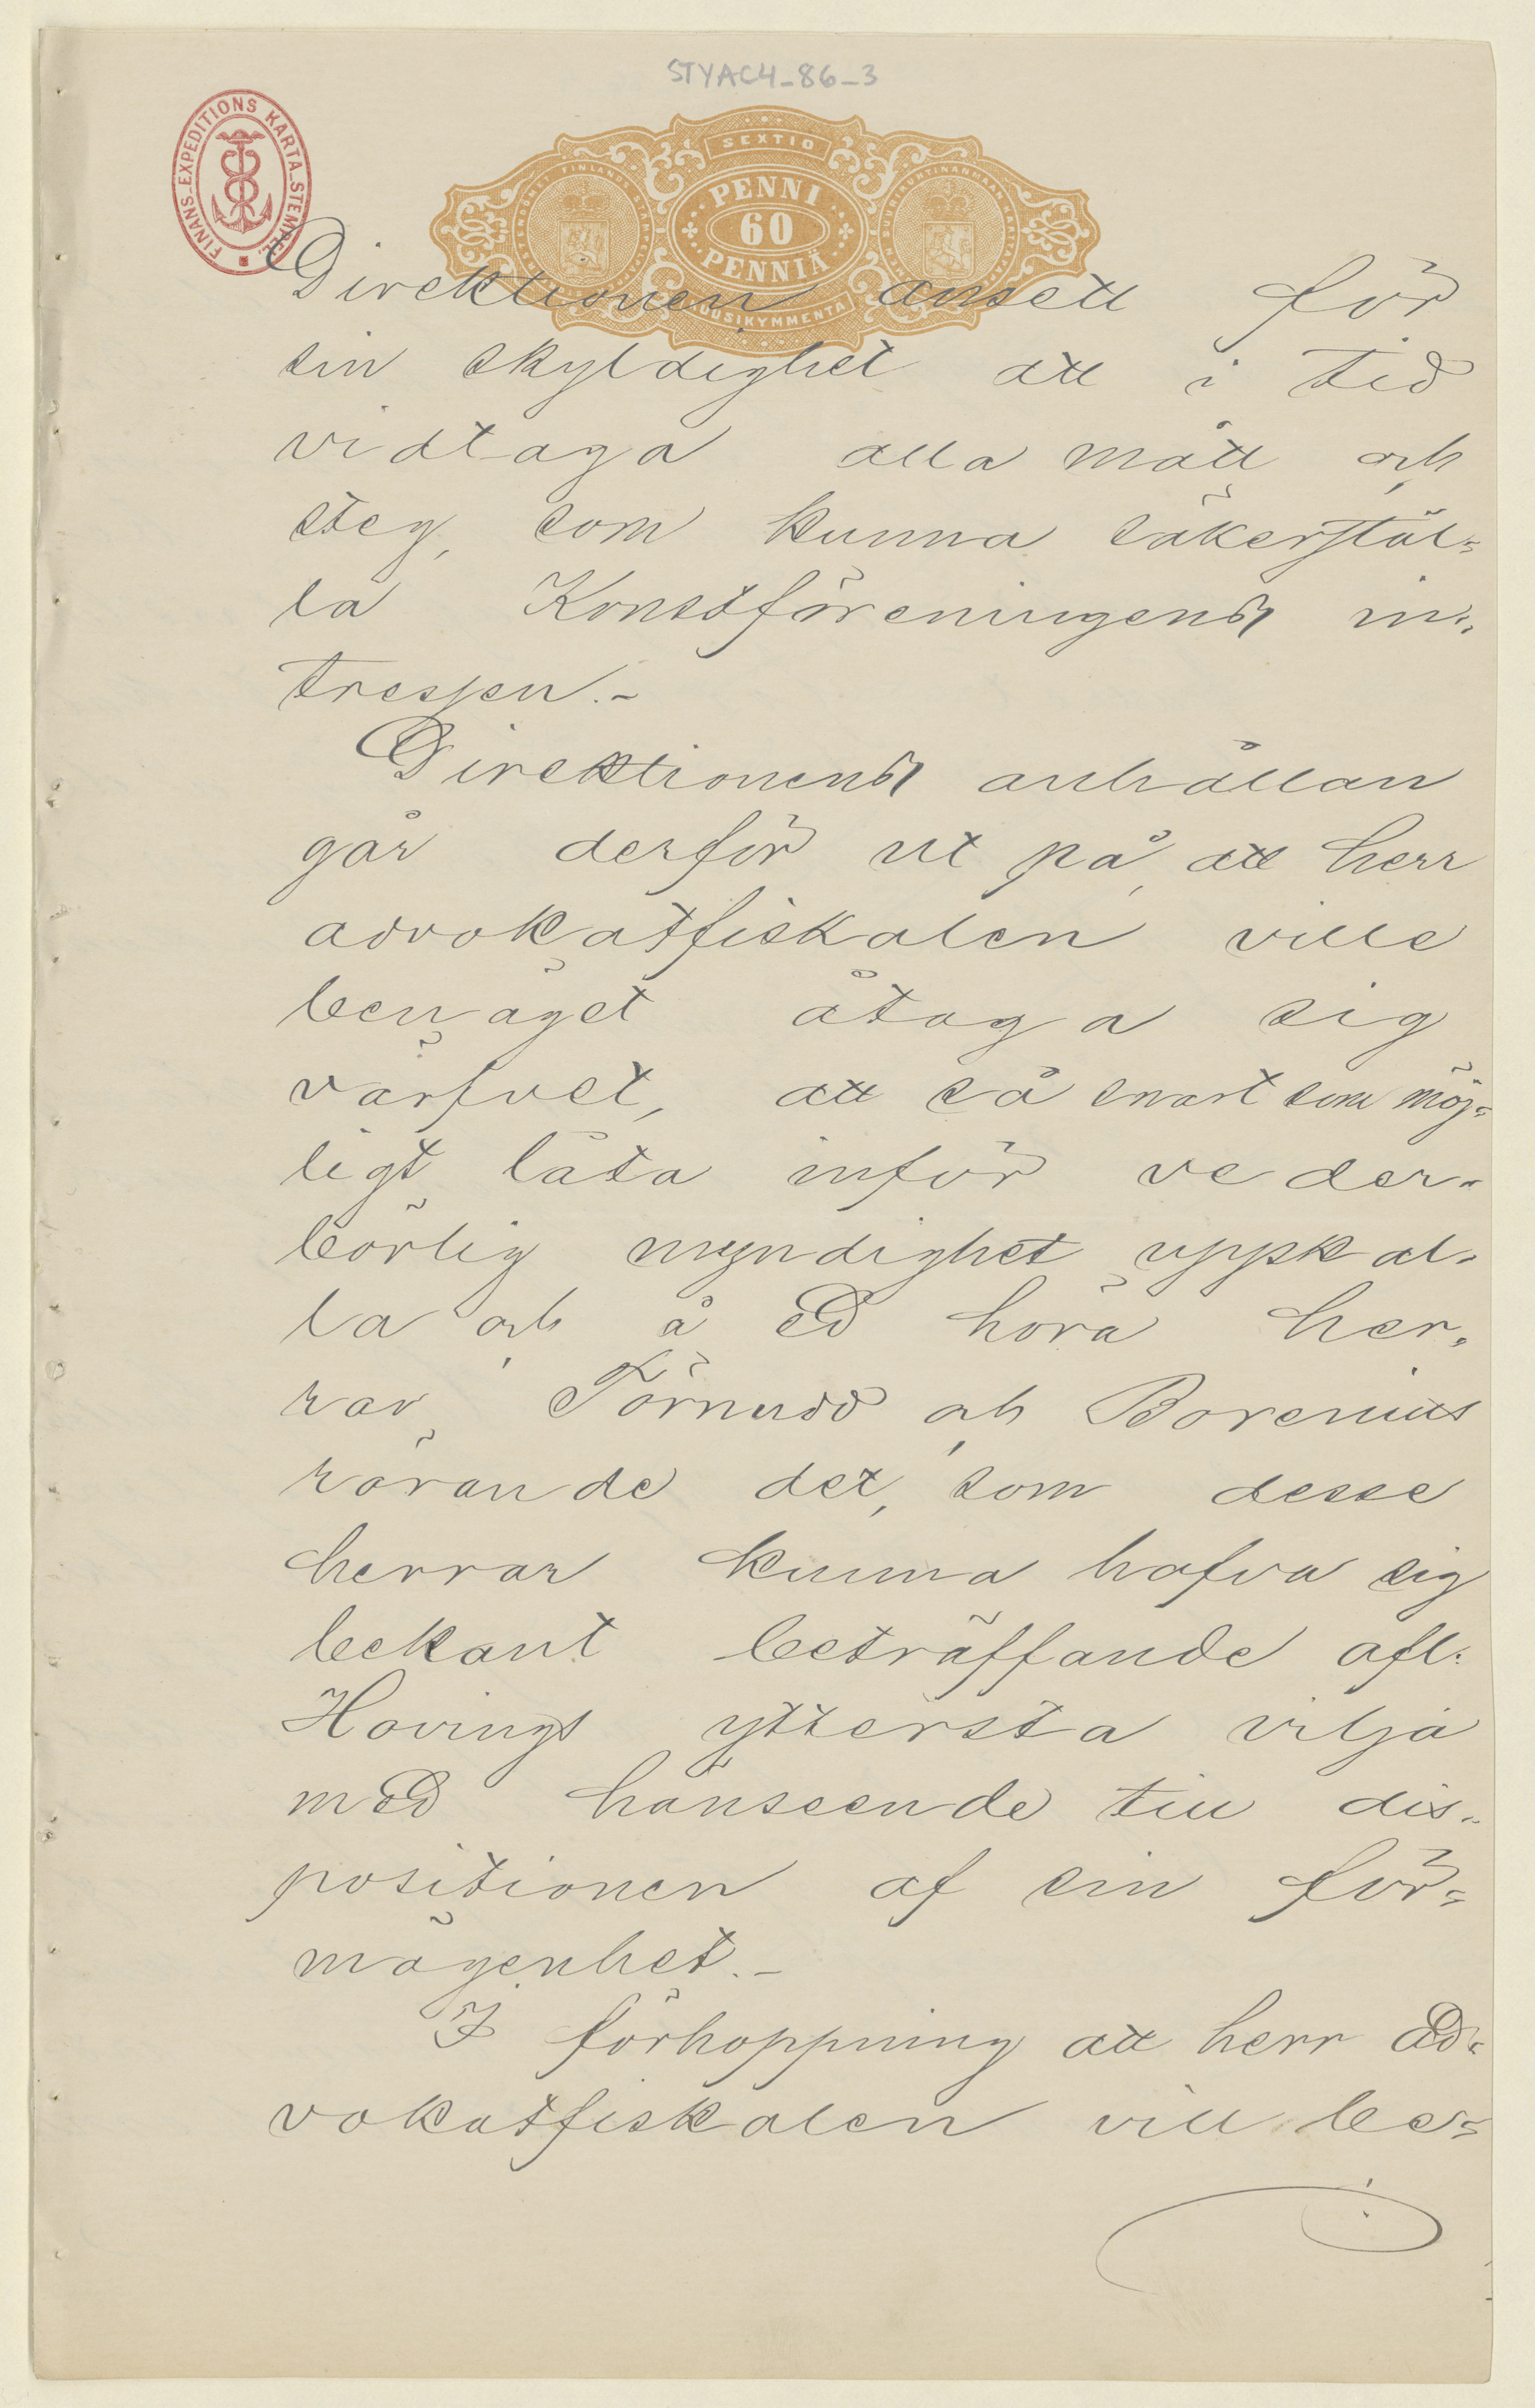 STYAC4-86-3
FINANS-EXPEDITIONS KARTA-STEMPEL
SEXTIO
PENNI
60
PENNIÄ
KUUSIKYMMENTÄ
Direktionen ansett för
sin skyldighet att i tid
vidtaga alla mått och
steg, som kunna säkerstäl=
la Konstföreningens in=
tressen.-
Direktionens anhållan
går derför ut på, att herr
advokatfiskalen ville
benäget åtaga sig
värfvet, att så snart som möj=
ligt låta inför veder=
börlig myndighet uppkal=
la och å ed höra her=
rar Törnudd och Borenius
rörande det, som desse
herrar kunna hafva sig
bekant beträffande afl:
Hovings yttersta vilja
med hänseende till dis=
positionen af sin för=
mögenhet.-
I förhoppning att herr ad=
vokatfiskalen vill be=